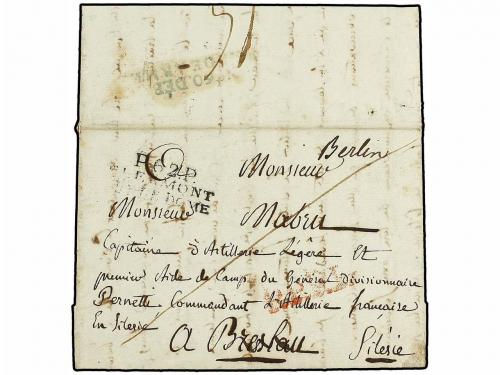 Berlin
P.62.P.
Monsieur
Monsieur
Mabru
Capitaine d'Artillerie Légère Et
premier Aide de Camp du Général Divisionnaire
Pernetti Commandant L'Artillerie française
En Silesie
A Breslau Silésie